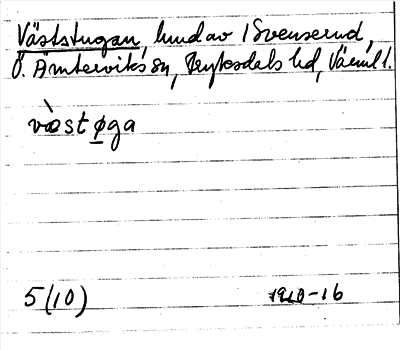 Väststugan, hmd av 1 Svenserud,
Ö. Ämterviks sn, Fryksdals hd, Värml.
væ̀støga
5(10) 1910-16